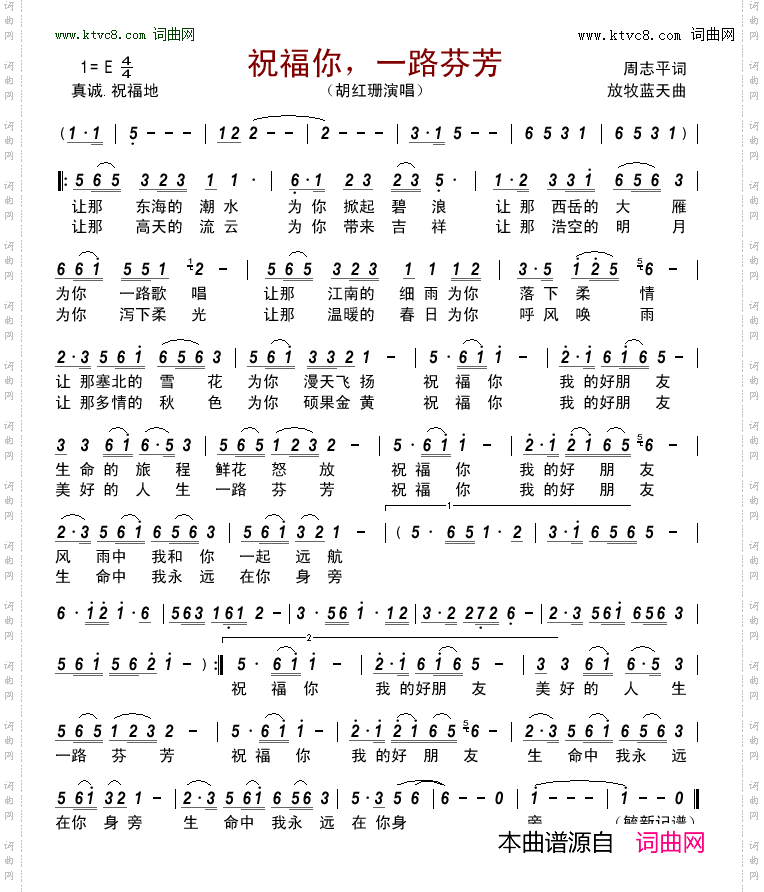 www.ktvc8.com 词曲网
www.ktvc8.com 词曲网
祝福你，一路芬芳
1= E 4/4
周志平词
真诚.祝福地
（胡红珊演唱）
放牧蓝天曲
(1·1 | 5 - - - | 12 2 - - | 2 - - - | 3·1 5 - - | 6 5 3 1 | 6 5 3 1 )|
‖: 5 65 323 1 1· | 6·1 23 23 5· | 1·2 331 656 3 |
让那 东海的 潮 水 为 你 掀起 碧 浪 让 那 西岳的 大 雁
让那 高天的 流 云 为 你 带来 吉 祥 让 那 浩空的 明 月
6 61 551 2 - | 565 323 1 1 12 | 3·5 125 6 - |
为你 一路歌 唱 让那 江南的 细 雨为你 落 下 柔 情
为你 泻下柔 光 让那 温暖的 春 日为你 呼 风 唤 雨
2·3 561 656 3 | 561 3321 - | 5· 61 1 - | 2·1 616 5 - |
让 那塞北的 雪 花 为你 漫天飞 扬 祝 福 你 我 的好朋 友
让 那多情的 秋 色 为你 硕果金 黄 祝 福 你 我 的好朋 友
3 3 61 6·5 3 | 565 123 2 - | 5· 61 1 - | 2·1 2165 6 - |
生 命 的 旅 程 鲜花 怒 放 祝 福 你 我 的好 朋 友
美 好 的 人 生 一路 芬 芳 祝 福 你 我 的好 朋 友
1
2·3 561 656 3 | 561 32 1 - | ( 5· 65 1·2 | 3·1 6565 - |
风 雨中 我和 你 一起 远 航
生 命中 我永 远 在你 身 旁
6·12 1·6 | 563 161 2 - | 3·56 1·12 | 3·2 272 6 - | 2·3 561 656 3 |
2
561 562 1 - ) :‖ 5· 61 1 - | 2·1 616 5 - | 3 3 61 6·5 3 |
祝 福 你 我 的好朋 友 美 好 的 人 生
565 123 2 - | 5· 61 1 - | 2·1 2165 6 - | 2·3 561 656 3 |
一路 芬 芳 祝 福 你 我 的好 朋 友 生 命中 我永 远
561 32 1 - | 2·3 561 656 3 | 5 61 3 56 | 6 - - 0 | 1 - - - | 1 - - 0 ‖
在你 身 旁 生 命中 我永 远 在 你身 旁 （毓新记谱）
本曲谱源自 词曲网
词曲网
词曲网